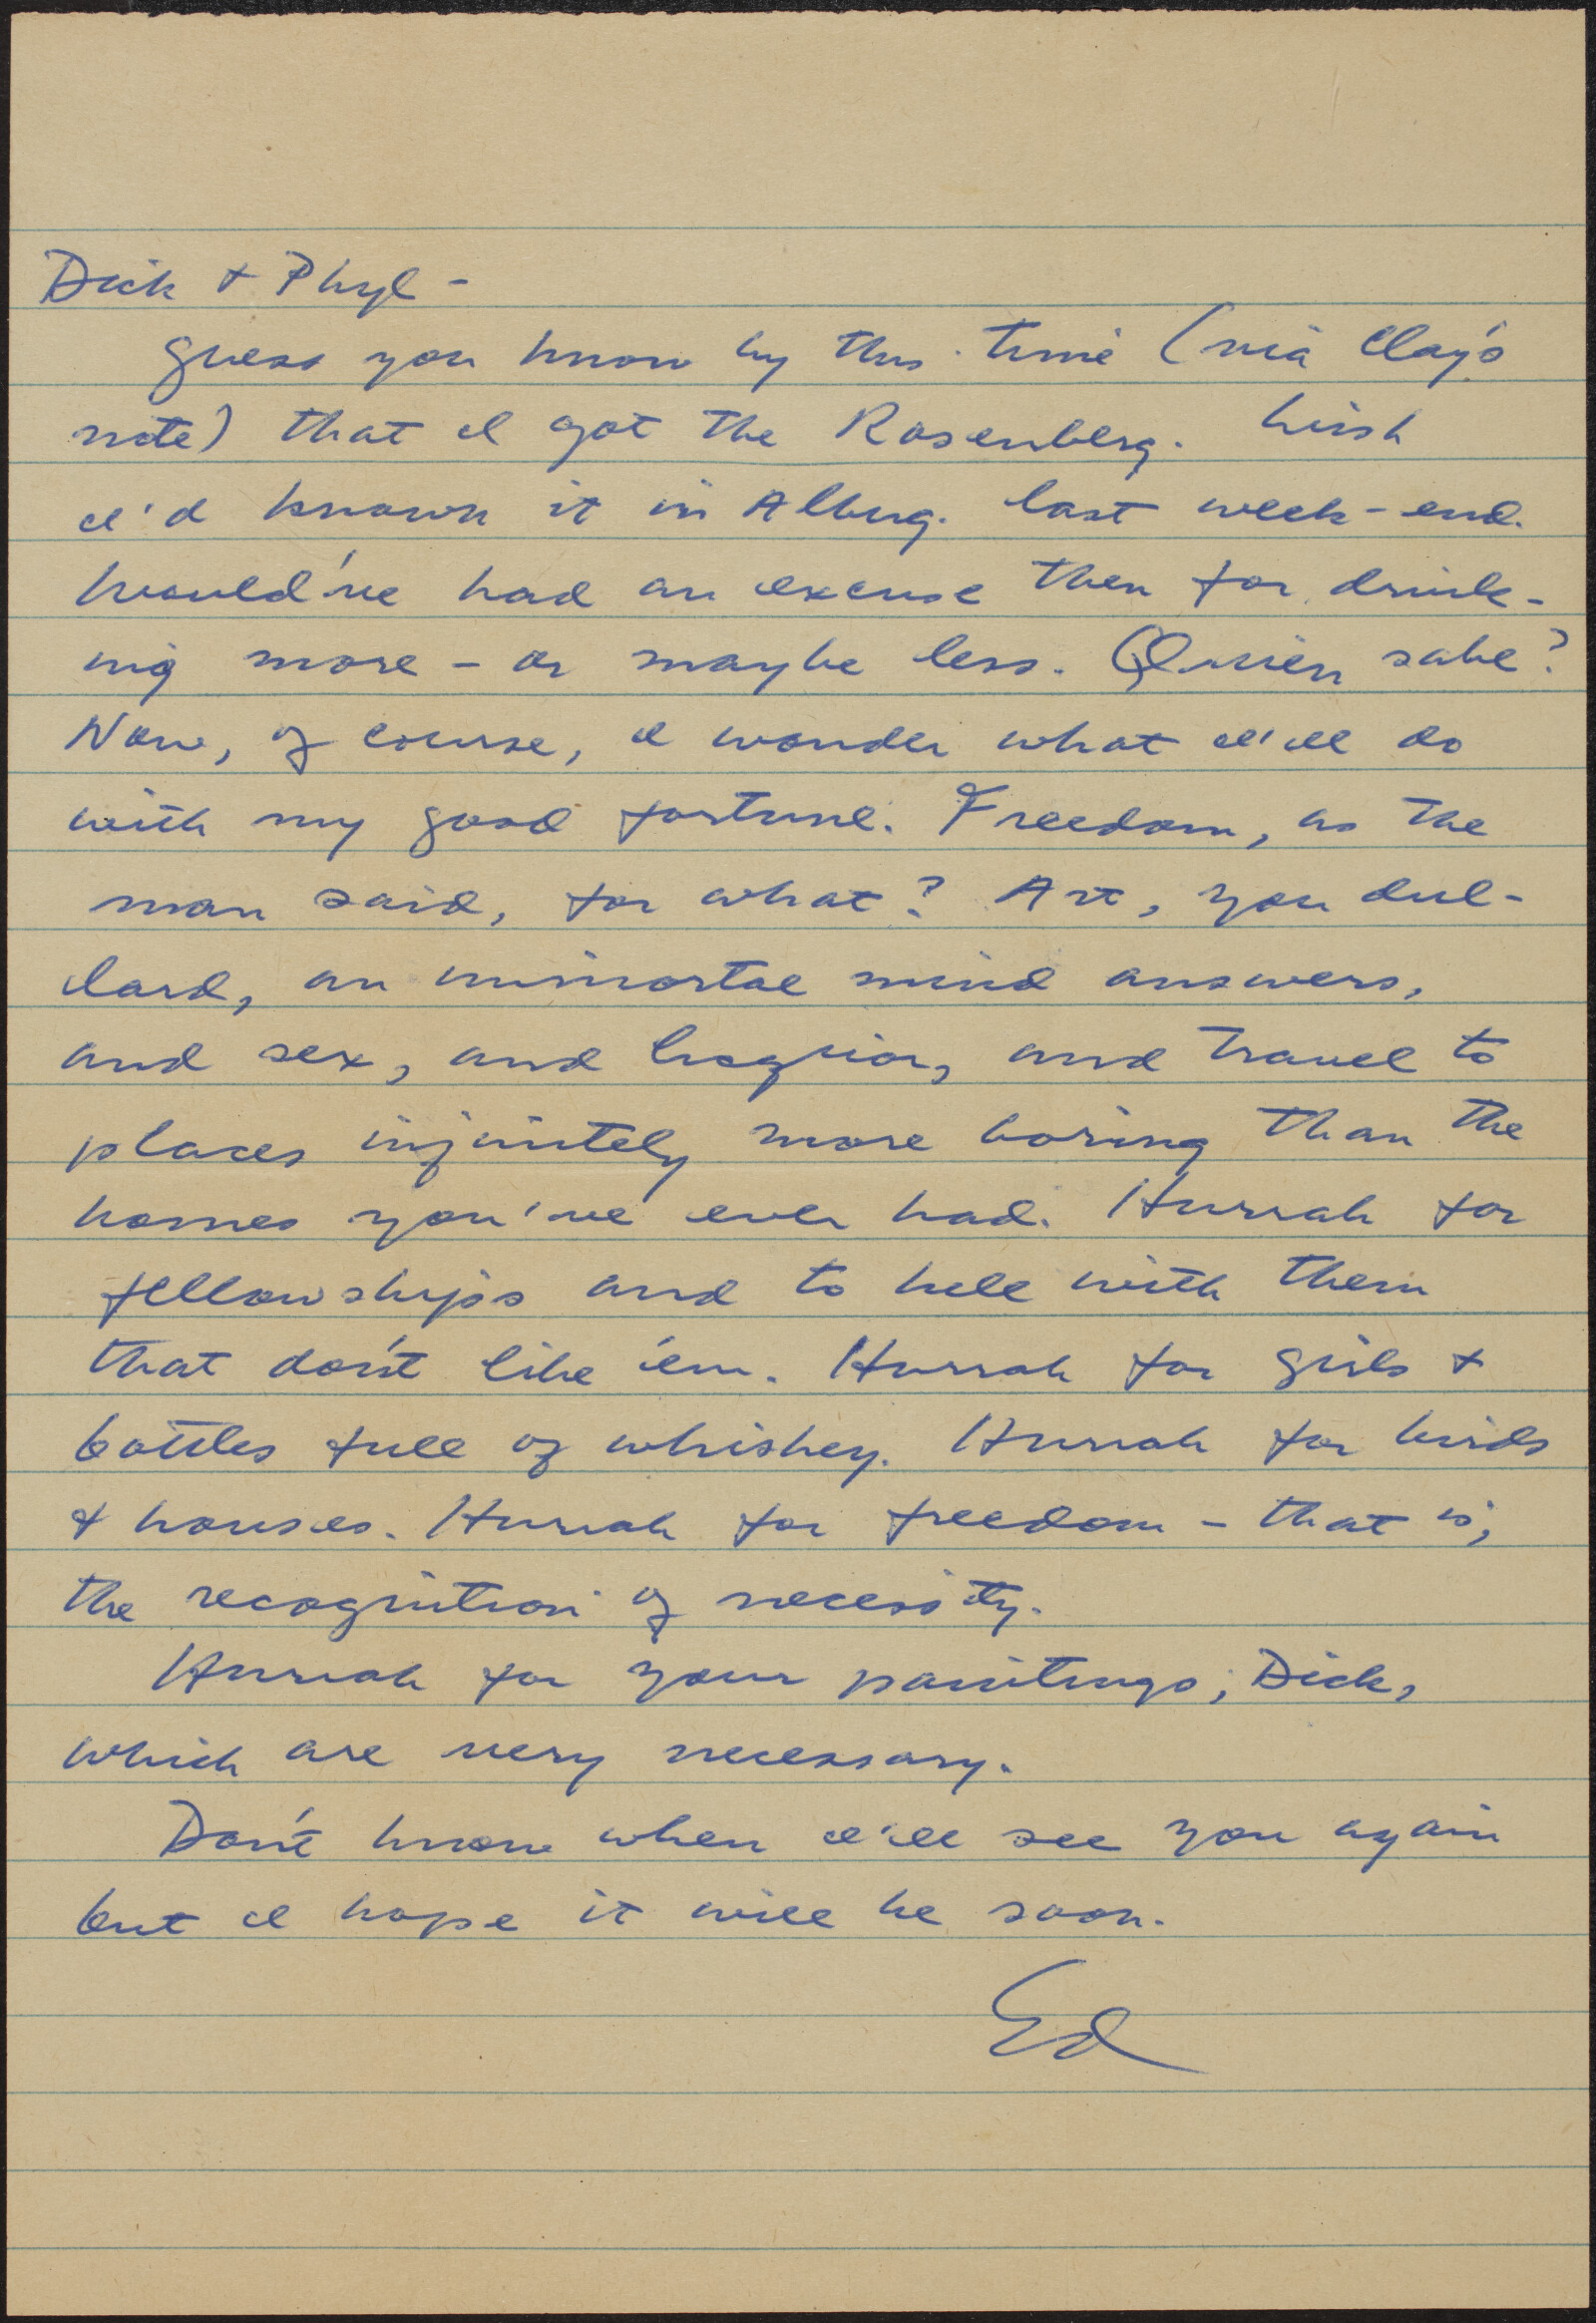 Dick + Phyl -
Guess you know by this time (via Clay's
note) that I got the Rosenberg. Wish
I'd known it in Albuq. last week-end.
Would've had an excuse then for drink-
ing more - or maybe less. Quien sabe?
Now, of course, I wonder what I'll do
with my good fortune. Freedom, as the
man said, for what? Art, you dul-
lard, an immortal mind answers,
and sex, and liquor, and travel to
places infinitely more boring than the
homes you've ever had. Hurrah for
fellowships and to hell with them
that don't like 'em. Hurrah for girls +
bottles full of whiskey. Hurrah for birds
+ houses. Hurrah for freedom - that is,
the recognition of necessity.
Hurrah for your paintings, Dick,
which are very necessary.
Don't know when I'll see you again
but I hope it will be soon.
Ed